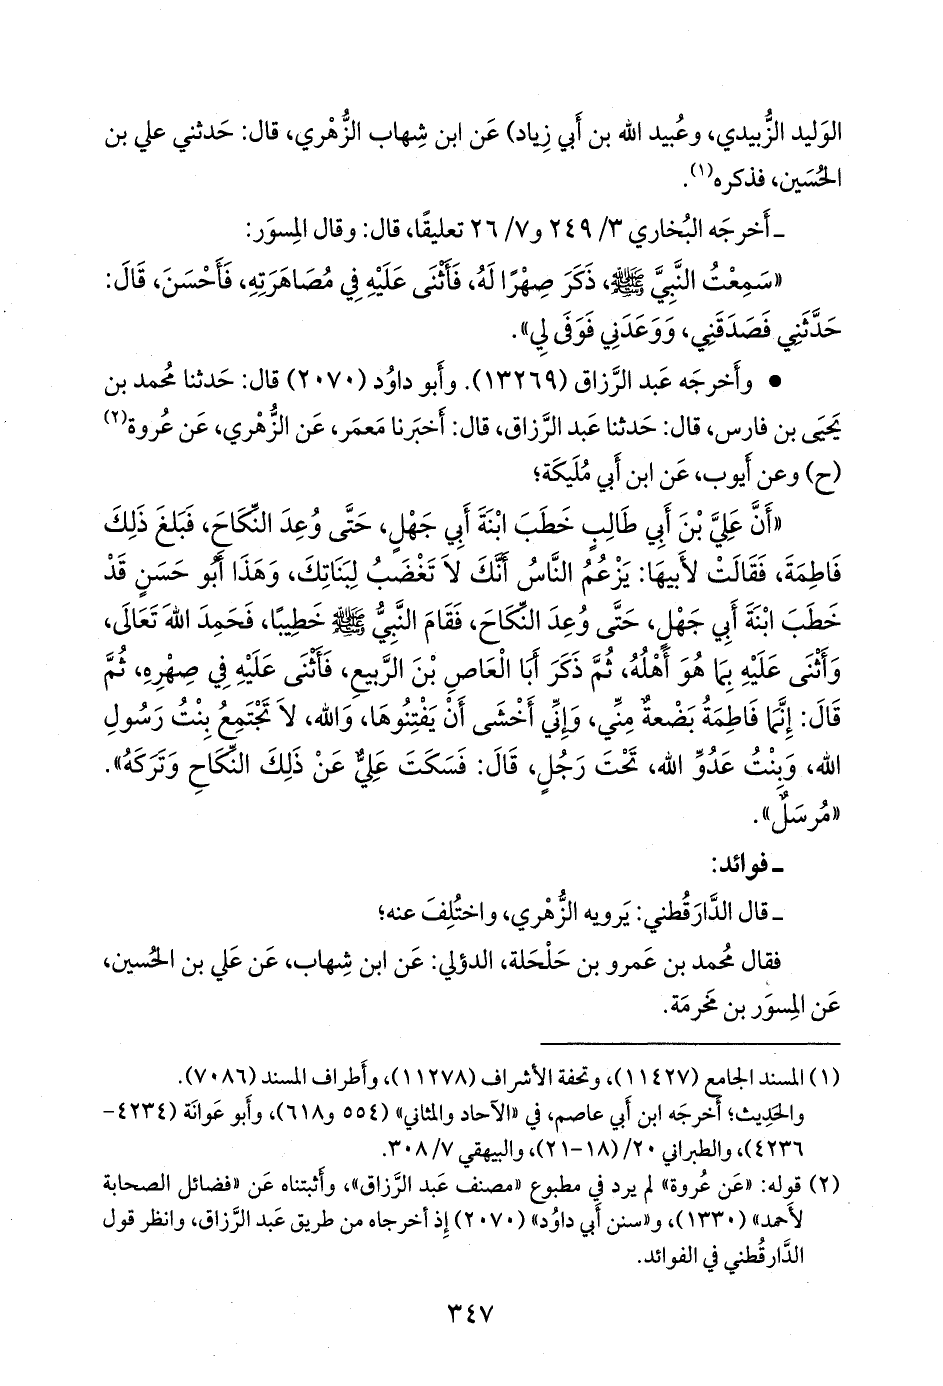 الوَليد الزُّبيدي، وعُبيد الله بن أَبي زِياد) عَن ابن شِهاب الزُّهْري، قال: حَدثني علي بن
الحُسَين، فذكره(١).
ـ أَخرجَه البُخاري ٣/ ٢٤٩ و٧/ ٢٦ تعليقًا، قال: وقال المِسوَر:
«سَمِعْتُ النَّبِيَّ ﷺ، ذَكَرَ صِهْرًا لَهُ، فَأَثْنَى عَلَيْهِ فِي مُصَاهَرَتِهِ، فَأَحْسَنَ، قَالَ:
حَدَّثَنِي فَصَدَقَنِي، وَوَعَدَنِي فَوَفَى لِي».
• وأَخرجَه عَبد الرَّزاق (١٣٢٦٩). وأَبو داوُد (٢٠٧٠) قال: حَدثنا مُحمد بن
يَحيَى بن فارس، قال: حَدثنا عَبد الرَّزاق، قال: أَخبَرنا مَعمَر، عَن الزُّهْري، عَن عُروة(٢)
(ح) وعن أَيوب، عَن ابن أَبي مُلَيكَة؛
«أَنَّ عَلِيَّ بْنَ أَبِي طَالِبٍ خَطَبَ ابْنَةَ أَبِي جَهْلٍ، حَتَّى وُعِدَ النِّكَاحَ، فَبَلَغَ ذَلِكَ
فَاطِمَةَ، فَقَالَتْ لأَبِيهَا: يَزْعُمُ النَّاسُ أَنَّكَ لاَ تَغْضَبُ لِبَنَاتِكَ، وَهَذَا أَبُو حَسَنٍ قَدْ
خَطَبَ ابْنَةَ أَبِي جَهْلٍ، حَتَّى وُعِدَ النِّكَاحَ، فَقَامَ النَّبِيُّ ﷺ خَطِيبًا، فَحَمِدَ اللهَ تَعَالَى،
وَأَثْنَى عَلَيْهِ بِمَا هُوَ أَهْلُهُ، ثُمَّ ذَكَرَ أَبَا الْعَاصِ بْنَ الرَّبِيعِ، فَأَثْنَى عَلَيْهِ فِي صِهْرِهِ، ثُمَّ
قَالَ: إِنَّمَا فَاطِمَةُ بَضْعةٌ مِنِّي، وَإِنِّي أَخْشَى أَنْ يَفْتِنُوهَا، وَالله، لاَ تَجْتَمِعُ بِنْتُ رَسُولِ
الله، وَبِنْتُ عَدُوِّ الله، تَحْتَ رَجُلٍ، قَالَ: فَسَكَتَ عَلِيٌّ عَنْ ذَلِكَ النِّكَاحِ وَتَرَكَهُ».
«مُرسَلٌ».
ـ فوائد:
ـ قال الدَّارَقُطني: يَرويه الزُّهْري، واختُلِفَ عنه؛
فقال مُحمد بن عَمرو بن حَلْحَلة، الدؤلي: عَن ابن شِهاب، عَن عَلي بن الحُسين،
عَن المِسوَر بن مَخرمَة.
(١) المسند الجامع (١١٤٢٧)، وتحفة الأشراف (١١٢٧٨)، وأَطراف المسند (٧٠٨٦).
والحَديث؛ أَخرجَه ابن أَبي عاصم، في «الآحاد والمثاني» (٥٥٤ و٦١٨)، وأَبو عَوانَة (٤٢٣٤-
٤٢٣٦)، والطبراني ٢٠/ (١٨-٢١)، والبيهقي ٧/ ٣٠٨.
(٢) قوله: «عَن عُروة» لم يرد في مطبوع «مصنف عَبد الرَّزاق»، وأَثبتناه عَن «فضائل الصحابة
لأَحمد» (١٣٣٠)، و«سنن أَبي داوُد» (٢٠٧٠) إذ أخرجاه من طريق عَبد الرَّزاق، وانظر قول
الدَّارقُطني في الفوائد.
٣٤٧